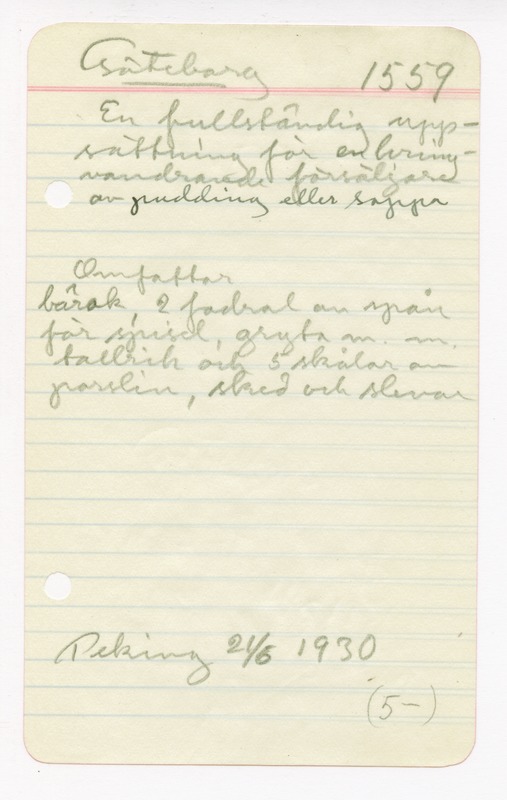 Göteborg 1559
En fullständig upp-
sättning för en kring-
vandrande försäljare
av pudding eller soppa
Omfattar
bärok, 2 fodral av spån
för spisel, gryta m. m.
tallrik och 5 skålar av
porslin, sked och slevar
Peking 21/5 1930
(5-)